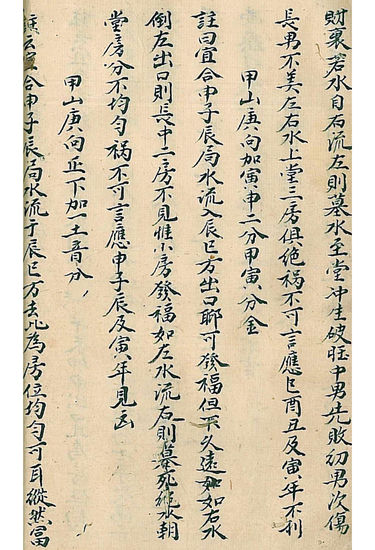 財裹若水自右流左則墓水至堂冲生破旺中男先敗初男次傷
長男不美左右水上堂三房俱絕禍不可言應巳酉丑及寅年不利
甲山庚向加寅申二分甲寅分金
註曰宜合申子辰局水流入辰巳方出口耶可發福但不久遠如右水
倒左出口則長中二房不見惟小房發福如左水流右則墓死絕水朝
堂房分不均匀禍不可言應申子辰及寅年見凶
甲山庚向正下加一土音分
註云宜合申子辰局水流于辰巳方去凡為房位均匀可耳縱然富